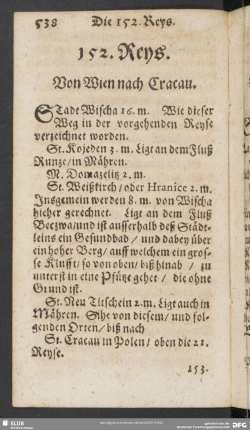 538 Die 152. Reys.
152. Reys.
Von Wien nach Cracau.
STadt Wischa 16. m. Wie dieser
Weg in der vorgehenden Reyse
verzeichnet worden.
St. Kojeden 3. m. Ligt an dem Fluß
Runze/ in Mähren.
M. Domazelitz 2. m.
St. Weißkirch/ oder Hranice 2. m.
Insgemein werden 8. m. von Wischa
hieher gerechnet. Ligt an dem Fluß
Beczwa/und ist ausserhalb deß Städt-
leins ein Gesundbad / und dabey über
ein hoher Berg/ auff welchem ein gros-
se Klufft/ so von oben/ biß hinab / zu
unterst in eine Pfütze gehet / die ohne
Grund ist.
St. Neu Titschein 2. m. Ligt auch in
Mähren. Sihe von diesem/ und fol-
genden Orten/ biß nach
St. Cracau in Polen/ oben die 22.
Reyse.
153.
SLUB
DFG